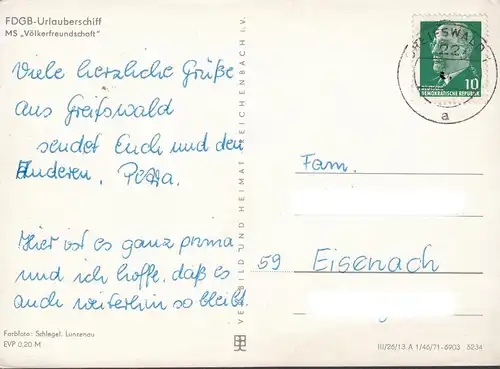 FDGB-Urlauberschiff
MS „Völkerfreundschaft"
Viele herzliche Grüße
aus Greifswald
sendet Euch und den
Anderen, Petra.
Hier ist es ganz prima
und ich hoffe, daß es
auch weiterhin so bleibt.
Farbfoto: Schlegel, Lunzenau
EVP 0,20 M
VERLAG BILD UND HEIMAT REICHENBACH i. V.
GREIFSWALD 1
a
10
DEMOKRATISCHE REPUBLIK
Fam.
59 Eisenach
III/26/13 A 1/46/71-6903 5234